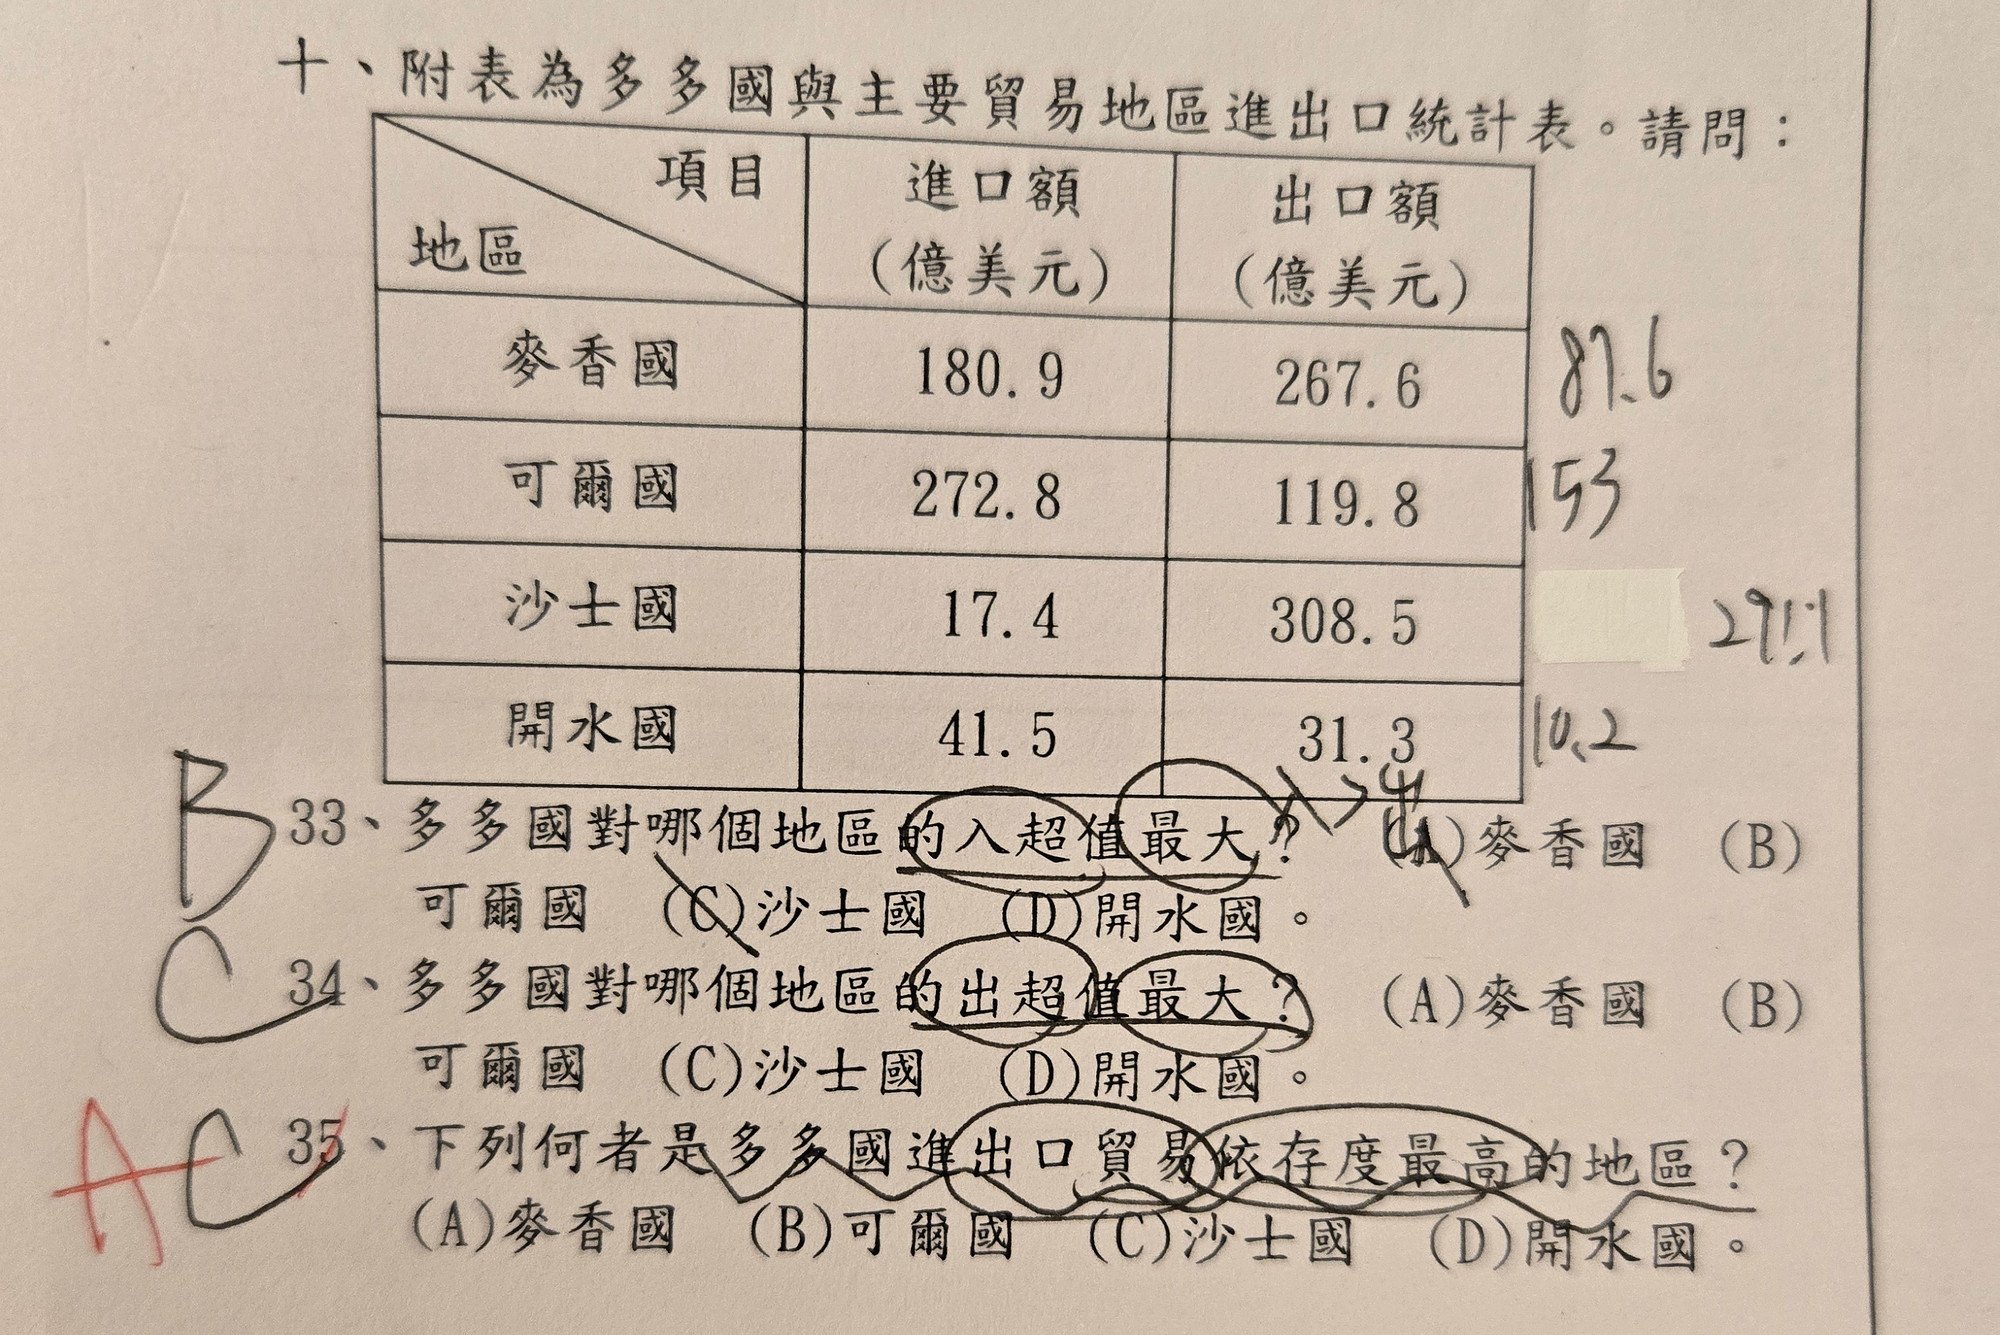 十、附表為多多國與主要貿易地區進出口統計表。請問：
項目 進口額 出口額
地區 (億美元) (億美元)
麥香國 180.9 267.6 87.6
可爾國 272.8 119.8 153
沙士國 17.4 308.5 291.1
開水國 41.5 31.3 10.2
入>出
B 33、多多國對哪個地區的入超值最大？ (A)麥香國 (B)
可爾國 (C)沙士國 (D)開水國。
C 34、多多國對哪個地區的出超值最大？ (A)麥香國 (B)
可爾國 (C)沙士國 (D)開水國。
A C 35、下列何者是多多國進出口貿易依存度最高的地區？
(A)麥香國 (B)可爾國 (C)沙士國 (D)開水國。